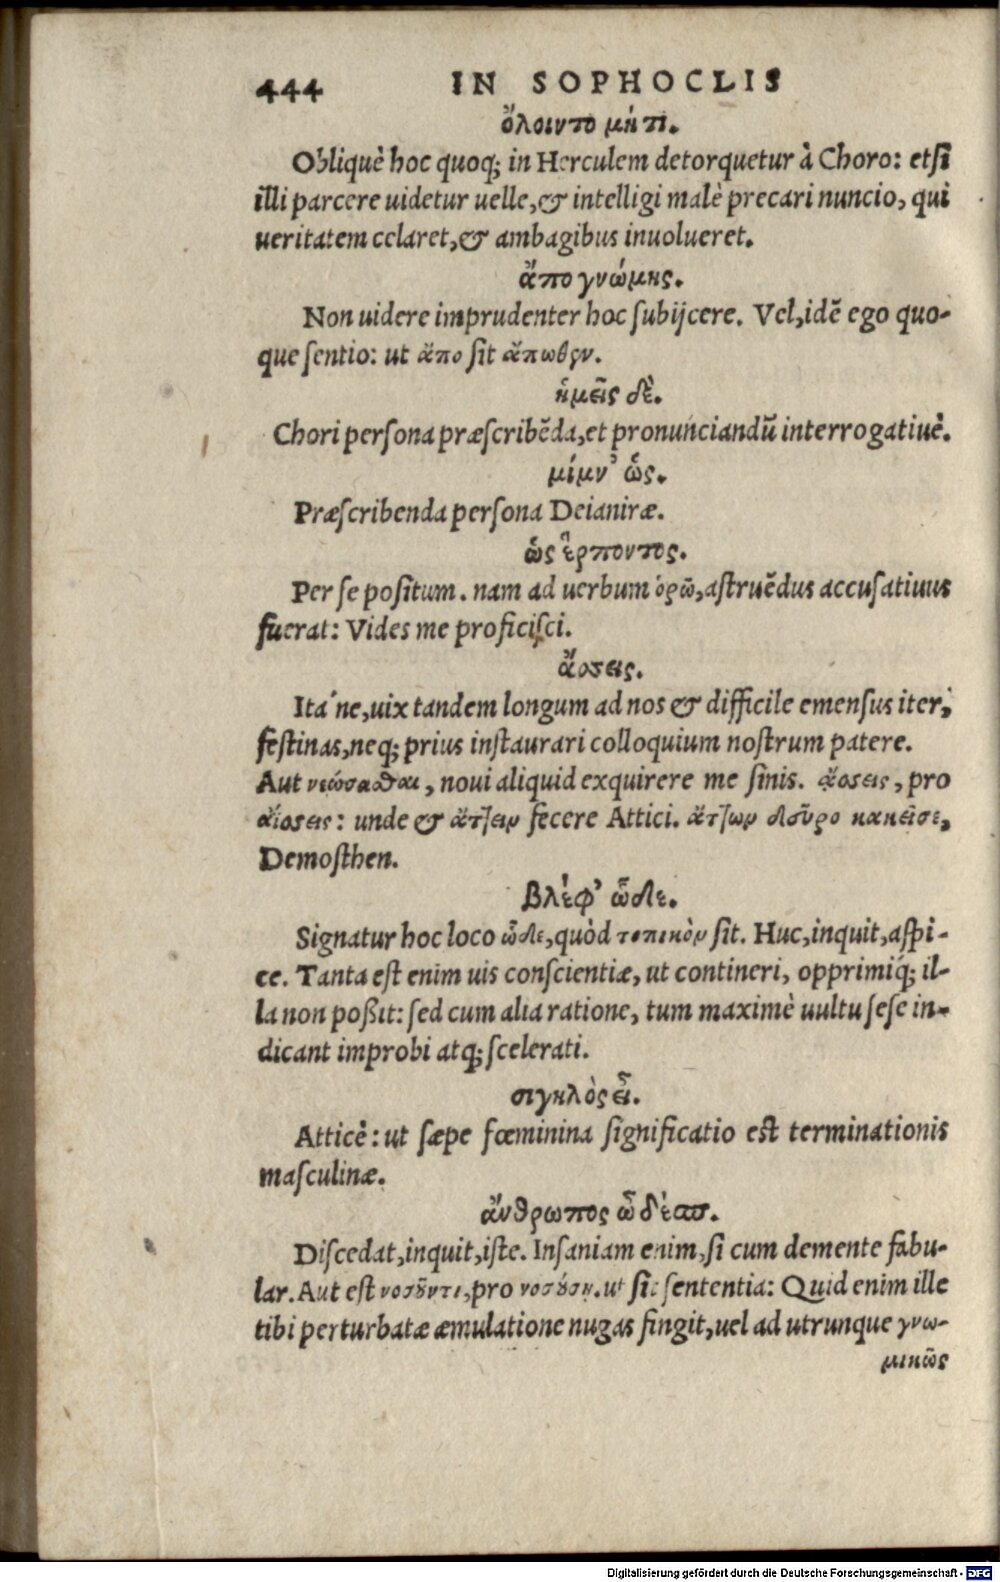 444 IN SOPHOCLIS
ὄλοιντο μή τι.
Obliquè hoc quoq; in Herculem detorquetur à Choro: etsi
illi parcere uidetur uelle, & intelligi malè precari nuncio, qui
ueritatem celaret, & ambagibus inuolueret.
ἄπο γνώμης.
Non uidere imprudenter hoc subijcere. Vel, idē ego quo-
que sentio: ut ἄπο sit ἄπωθεν.
ἡμεῖς δὲ.
Chori persona præscribēda, et pronunciandū interrogatiuè.
μίμν' ὡς.
Præscribenda persona Deianiræ.
ὡς ἕρποντος.
Per se positum. nam ad uerbum ὁρῶ, astruēdus accusatiuus
fuerat: Vides me proficisci.
ἄσσεις.
Itá ne, uix tandem longum ad nos & difficile emensus iter,
festinas, neq; prius instaurari colloquium nostrum patere.
Aut νεώσασθαι, noui aliquid exquirere me sinis. ἄσσεις, pro
ἀΐσσεις: unde & ἄττειν fecere Attici. ἄττων δεῦρο κακεῖσε,
Demosthen.
βλέφ' ὧδε.
Signatur hoc loco ὧδε, quòd τοπικὸν sit. Huc, inquit, aspi-
ce. Tanta est enim uis conscientiæ, ut contineri, opprimíq; il-
la non poßit: sed cum alia ratione, tum maximè uultu sese in-
dicant improbi atq; scelerati.
σιγηλὸς εἶ.
Atticè: ut sæpe fœminina significatio est terminationis
masculinæ.
ἄνθρωπος ὦ δέσπ.
Discedat, inquit, iste. Insaniam enim, si cum demente fabu-
lar. Aut est νοσοῦντι, pro νοσούσῃ. ut sit sententia: Quid enim ille
tibi perturbatæ æmulatione nugas fingit, uel ad utrunque γνω-
μικῶς
Digitalisierung gefördert durch die Deutsche Forschungsgemeinschaft - DFG